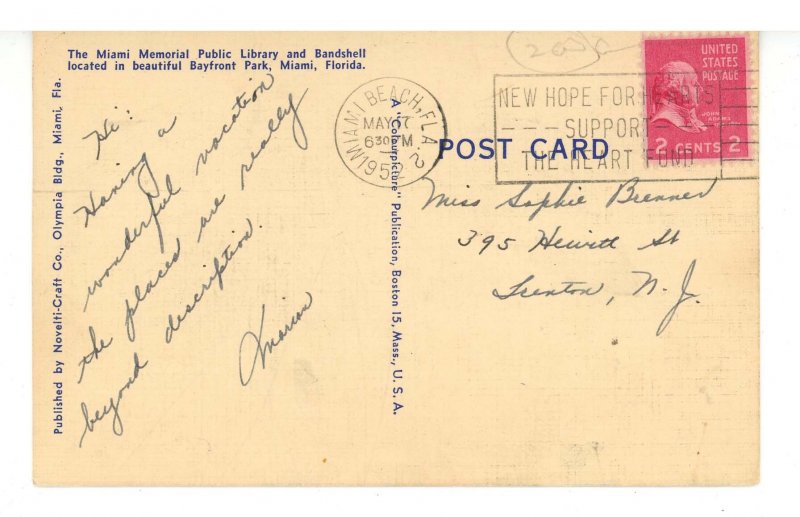 The Miami Memorial Public Library and Bandshell
located in beautiful Bayfront Park, Miami, Florida.
Published by Novelti-Craft Co., Olympia Bldg., Miami, Fla.
Hi:
Having a
wonderful vacation
the places are really
beyond description.
A "Colourpicture" Publication, Boston 15, Mass., U. S. A.
MIAMI BEACH, FLA.
MAY
630 PM
2
POST CARD
NEW HOPE FOR HEARTS
SUPPORT
THE HEART FUND
UNITED
STATES
POSTAGE
JOHN
ADAMS
2 CENTS 2
Miss Sophie Brenner
395 Hewitt St
Trenton, N. J.